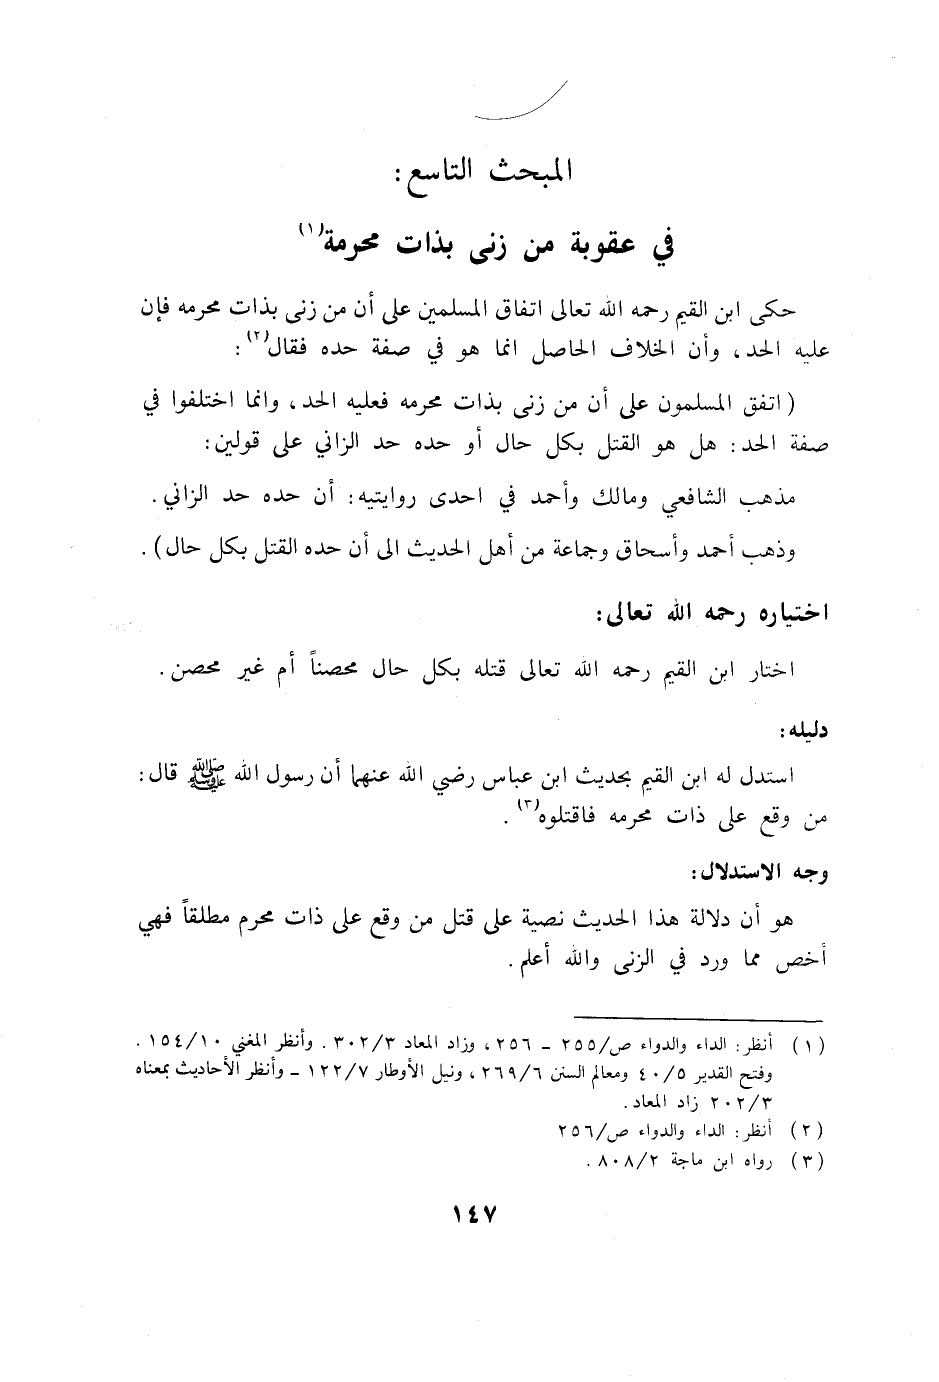 المبحث التاسع:
في عقوبة من زنى بذات محرمة(١)
حكى ابن القيم رحمه الله تعالى اتفاق المسلمين على أن من زنى بذات محرمه فإن
عليه الحد، وأن الخلاف الحاصل انما هو في صفة حده فقال(٢):
(اتفق المسلمون على أن من زنى بذات محرمه فعليه الحد، وانما اختلفوا في
صفة الحد: هل هو القتل بكل حال أو حده حد الزاني على قولين:
مذهب الشافعي ومالك وأحمد في احدى روايتيه: أن حده حد الزاني.
وذهب أحمد وأسحاق وجماعة من أهل الحديث الى أن حده القتل بكل حال).
اختياره رحمه الله تعالى:
اختار ابن القيم رحمه الله تعالى قتله بكل حال محصناً أم غير محصن.
دليله:
استدل له ابن القيم بحديث ابن عباس رضي الله عنهما أن رسول الله ﷺ قال:
من وقع على ذات محرمه فاقتلوه(٣).
وجه الاستدلال:
هو أن دلالة هذا الحديث نصية على قتل من وقع على ذات محرم مطلقاً فهي
أخص مما ورد في الزنى والله أعلم.
(١) أنظر: الداء والدواء ص/٢٥٥ – ٢٥٦، وزاد المعاد ٣٠٢/٣. وأنظر المغني ١٥٤/١٠.
وفتح القدير ٤٠/٥ ومعالم السنن ٢٦٩/٦، ونيل الأوطار ١٢٢/٧ – وأنظر الأحاديث بمعناه
٢٠٢/٣ زاد المعاد.
(٢) أنظر: الداء والدواء ص/٢٥٦
(٣) رواه ابن ماجة ٨٠٨/٢.
١٤٧